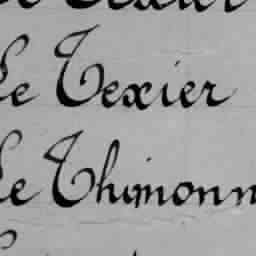 Le Texier
Le Thimonn